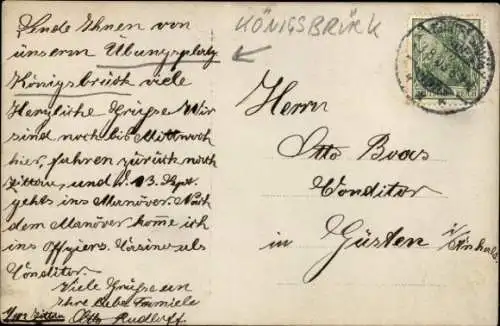 Sende Ihnen von
unserm Übungsplatz
Königsbrück viele
Herzliche Grüsse. Wir
sind noch bis Mittwoch
hier, fahren zurück nach
Zittau, und d. 13. Sept.
gehts ins Manöver. Nach
dem Manöver komme ich
ins Offiziers Casino als
Conditor.
Viele Grüsse an
Ihre liebe Famiele
Otto Rudloff
KÖNIGSBRÜCK
Herrn
Otto Boas
Conditor
in Güsten i/Anhalt.